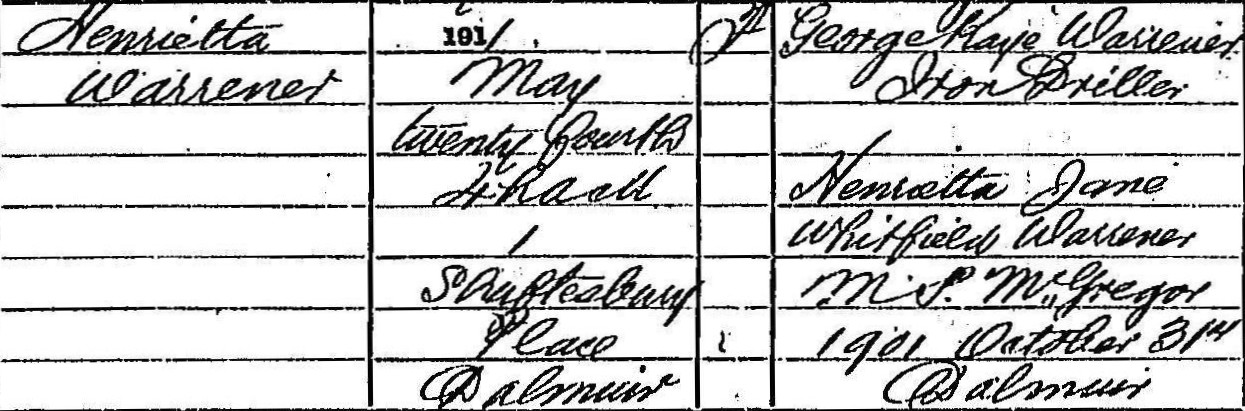 Henrietta
Warrener
1911
May
twenty fourth
4h am
1
Shaftesbury
Place
Dalmuir
F
George Kaye Warrener
Iron Driller
Henrietta Jane
Whitfield Warrener
M.S. McGregor
1901 October 31st
Dalmuir